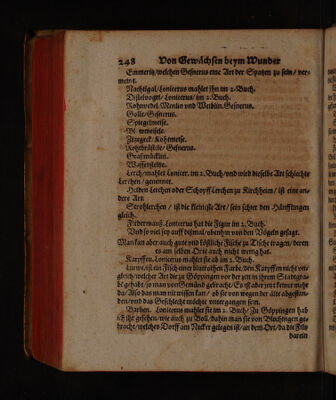 248 Von Gewächsen beym Wunder
Emmeritz/welchen Gesnerus eine Art der Spatzen zu sein/ ver-
meint.
Nachtigal/Lonicerus mahlet ihn im 2. Buch.
Distelvogel/ Lonicerus/ im 2. Buch.
Rohtwedel/Menlin und Weiblin. Gesnerus.
Golle/Gesnerus.
Spiegelmeise.
Blawmeisele.
Kohtmeise.
Rohtbrüstle/ Gesnerus.
Graßmücklin.
Wasserstelze.
Lerch/mahlet Lonicer. im 2. Buch/und wird dieselbe Art schlechte
Lerchen/ genennet.
Heiden Lerchen oder Schopff Lerchen zu Kirchheim/ ist eine an-
dere Art.
Strohlerchen / ist die kleineste Art/ sein schier den Hänfflingen
gleich.
Fledermauß. Lonicerus hat die Figur im 2. Buch.
Und so viel sey auff dißmal/obenhin von den Vögeln gesagt.
Man kan aber auch gute und köstliche Fische zu Tische tragen/ deren
es am selben Orte auch nicht wenig hat.
Karpffen. Lonicerus mahlet sie ab im 2. Buch.
ist ein Fisch einer blutrothen Farbe/den Karpffen nicht un-
gleich/welcher Art die zu Göppingen vor der zeit in ihrem Stadtgra-
be gehabt/so man von Gemünd gebracht/Es ist aber jetzt keiner mehr
da/Also das man nit wissen kan/ ob sie von wegen der älte abgestan-
den/und das Geschlecht möchte untergangen sein.
Barben. Lonicerus mahlet sie im 2. Buch/ Zu Göppingen hab
ich ihr gesehen/wie auch zu Boll/dahin man sie von Blochingen ge-
bracht/welches Dorff am Necker gelegen ist/an dem Ort/da die Filß
darein